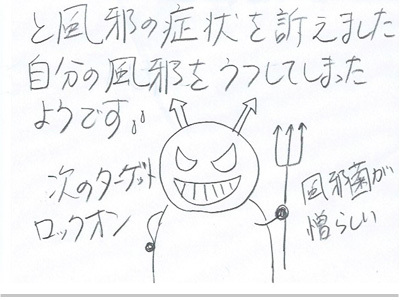 と風邪の症状を訴えました
自分の風邪をうつしてしまった
ようです。。
次のターゲット
ロックオン
風邪菌が
憎らしい